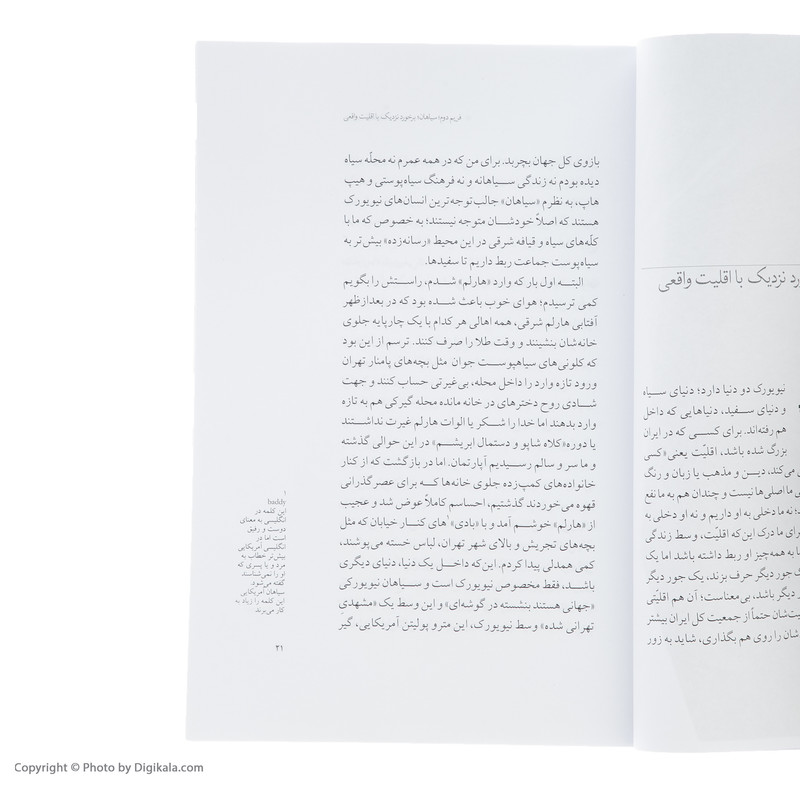 رد نزدیک با اقلیت واقعی
نیویورک دو دنیا دارد؛ دنیای سیاه
و دنیای سفید، دنیاهایی که داخل
هم رفته‌اند. برای کسی که در ایران
بزرگ شده باشد، اقلیّت یعنی «کسی
می‌کند، دین و مذهب یا زبان و رنگ
ما اصلی‌ها نیست و چندان هم به ما نفع
نه ما دخلی به او داریم و نه او دخلی به
رای ما درک این که اقلیّت، وسط زندگی
با به همه‌چیز او ربط داشته باشد اما یک
گ جور دیگر حرف بزند، یک جور دیگر
دیگر باشد، بی‌معناست؛ آن هم اقلیّتی
یت‌شان حتماً از جمعیت کل ایران بیشتر
شان را روی هم بگذاری، شاید به زور
فریم دوم: سیاهان؛ برخورد نزدیک با اقلیت واقعی
بازوی کل جهان بچربد. برای من که در همه عمرم نه محلّه سیاه
دیده بودم نه زندگی سیاهانه و نه فرهنگ سیاه‌پوستی و هیپ
هاپ، به نظرم «سیاهان» جالب‌توجه‌ترین انسان‌های نیویورک
هستند که اصلاً خودشان متوجه نیستند؛ به خصوص که ما با
کلّه‌های سیاه و قیافه شرقی در این محیط «رسانه‌زده» بیش‌تر به
سیاه‌پوست جماعت ربط داریم تا سفیدها.
البته اول بار که وارد «هارلم» شدم، راستش را بگویم
کمی ترسیدم؛ هوای خوب باعث شده بود که در بعدازظهر
آفتابی هارلم شرقی، همه اهالی هر کدام با یک چارپایه جلوی
خانه‌شان بنشینند و وقت طلا را صرف کنند. ترسم از این بود
که کلونی‌های سیاهپوست جوان مثل بچه‌های پامنار تهران
ورود تازه وارد را داخل محله، بی‌غیرتی حساب کنند و جهت
شادی روح دخترهای در خانه مانده محله گیرکی هم به تازه
وارد بدهند اما خدا را شکر یا الوات هارلم غیرت نداشتند
یا دوره «کلاه شاپو و دستمال ابریشم» در این حوالی گذشته
و ما سر و سالم رسیدیم آپارتمان. اما در بازگشت که از کنار
خانواده‌های کمپ‌زده جلوی خانه‌ها که برای عصرگذرانی
قهوه می‌خوردند گذشتیم، احساسم کاملاً عوض شد و عجیب
از «هارلم» خوشم آمد و با «بادی»۱های کنار خیابان که مثل
بچه‌های تجریش و بالای شهر تهران، لباس خسته می‌پوشند،
کمی همدلی پیدا کردم. این‌که داخل یک دنیا، دنیای دیگری
باشد، فقط مخصوص نیویورک است و سیاهان نیویورکی
«جهانی هستند بنشسته در گوشه‌ای» و این وسط یک «مشهدیِ
تهرانی شده» وسط نیویورک، این مترو پولیتن آمریکایی، گیر
۱
baddy
این کلمه در
انگلیسی به معنای
دوست و رفیق
است اما در
انگلیسی آمریکایی
بیش‌تر خطاب به
مرد و یا پسری که
او را نمی‌شناسند
گفته می‌شود.
سیاهان آمریکایی
این کلمه را زیاد به
کار می‌برند.
۲۱
Copyright © Photo by Digikala.com